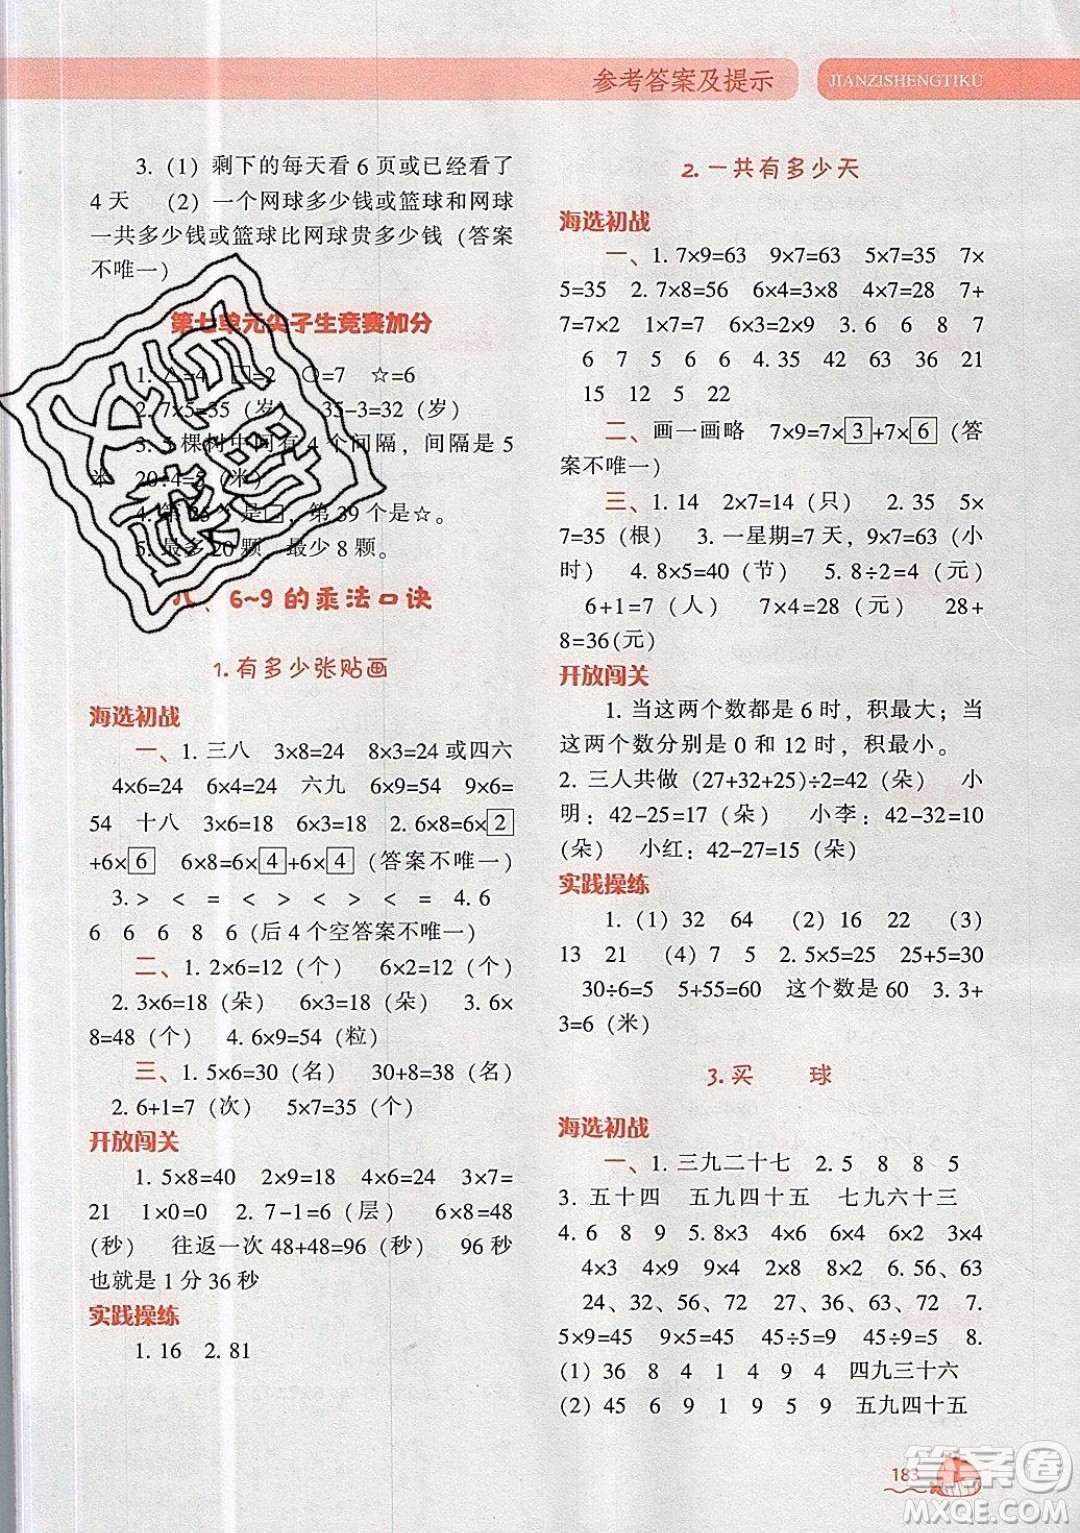 参考答案及提示
JIANZISHENGTIKU
3.(1)剩下的每天看6页或已经看了
4天 (2)一个网球多少钱或篮球和网球
一共多少钱或篮球比网球贵多少钱(答案
不唯一)
第七单元尖子生竞赛加分
1.△=4 □=2 ○=7 ☆=6
2.7×5=35(岁) 35-3=32(岁)
3.5棵树中间有4个间隔,间隔是5
米 20÷4=5(米)
4.第25个是□,第39个是☆。
5.最多20颗,最少8颗。
八、6~9的乘法口诀
1.有多少张贴画
海选初战
一、1.三八 3×8=24 8×3=24或四六
4×6=24 6×4=24 六九 6×9=54 9×6=
54 十八 3×6=18 6×3=18 2.6×8=6×2
+6×6 6×8=6×4+6×4(答案不唯一)
3.> < = < > < < = 4.6
6 6 6 8 6(后4个空答案不唯一)
二、1.2×6=12(个) 6×2=12(个)
2.3×6=18(朵) 6×3=18(朵) 3.6×
8=48(个) 4.6×9=54(粒)
三、1.5×6=30(名) 30+8=38(名)
2.6+1=7(次) 5×7=35(个)
开放闯关
1.5×8=40 2×9=18 4×6=24 3×7=
21 1×0=0 2.7-1=6(层) 6×8=48
(秒) 往返一次48+48=96(秒) 96秒
也就是1分36秒
实践操练
1.16 2.81
2.一共有多少天
海选初战
一、1.7×9=63 9×7=63 5×7=35 7×
5=35 2.7×8=56 6×4=3×8 4×7=28 7+
7=7×2 1×7=7 6×3=2×9 3.6 6 8 7
7 6 7 5 6 4.35 42 64 36 21
15 12 5 22
二、画一画略 7×9=7×3+7×6(答
案不唯一)
三、1.14 2×7=14(只) 2.35 5×
7=35(根) 3.一星期=7天,9×7=63(小
时) 4.8×5=40(节) 5.8÷2=4(元)
6+1=7(个) 7×4=28(元) 28+
8=36(元)
开放闯关
1.当这两个数都是6时,积最大;当
这两个数分别是0和12时,积最小。
2.三人共做(27+32+25)÷2=42(朵) 小
明:42-25=17(朵) 小李:42-32=10
(朵) 小红:42-27=15(朵)
实践操练
1.(1)32 64 (2)16 22 (3)
13 21 (4)7 5 2.5×5=25 25+5=30
30÷6=5 5+55=60 这个数是60 3.3+
3=6(米)
3.买 球
海选初战
一、1.三九二十七 2.5 8 8 5
3.五十四 五九四十五 七九六十三
4.6 8 9 5.8×3 4×6 2×9 3×6
4×3 2×6 2×4 1×8 6.56、63
24、32、54 27、36、63、72 7.
5×9=45 9×5=45 45÷5=9 45÷9=5 8.
(1)36 8 4 1 4 9 4 四九三十六
(2)45 6 9 1 9 5 9 五九四十五
183
答案圈
MXQE.COM